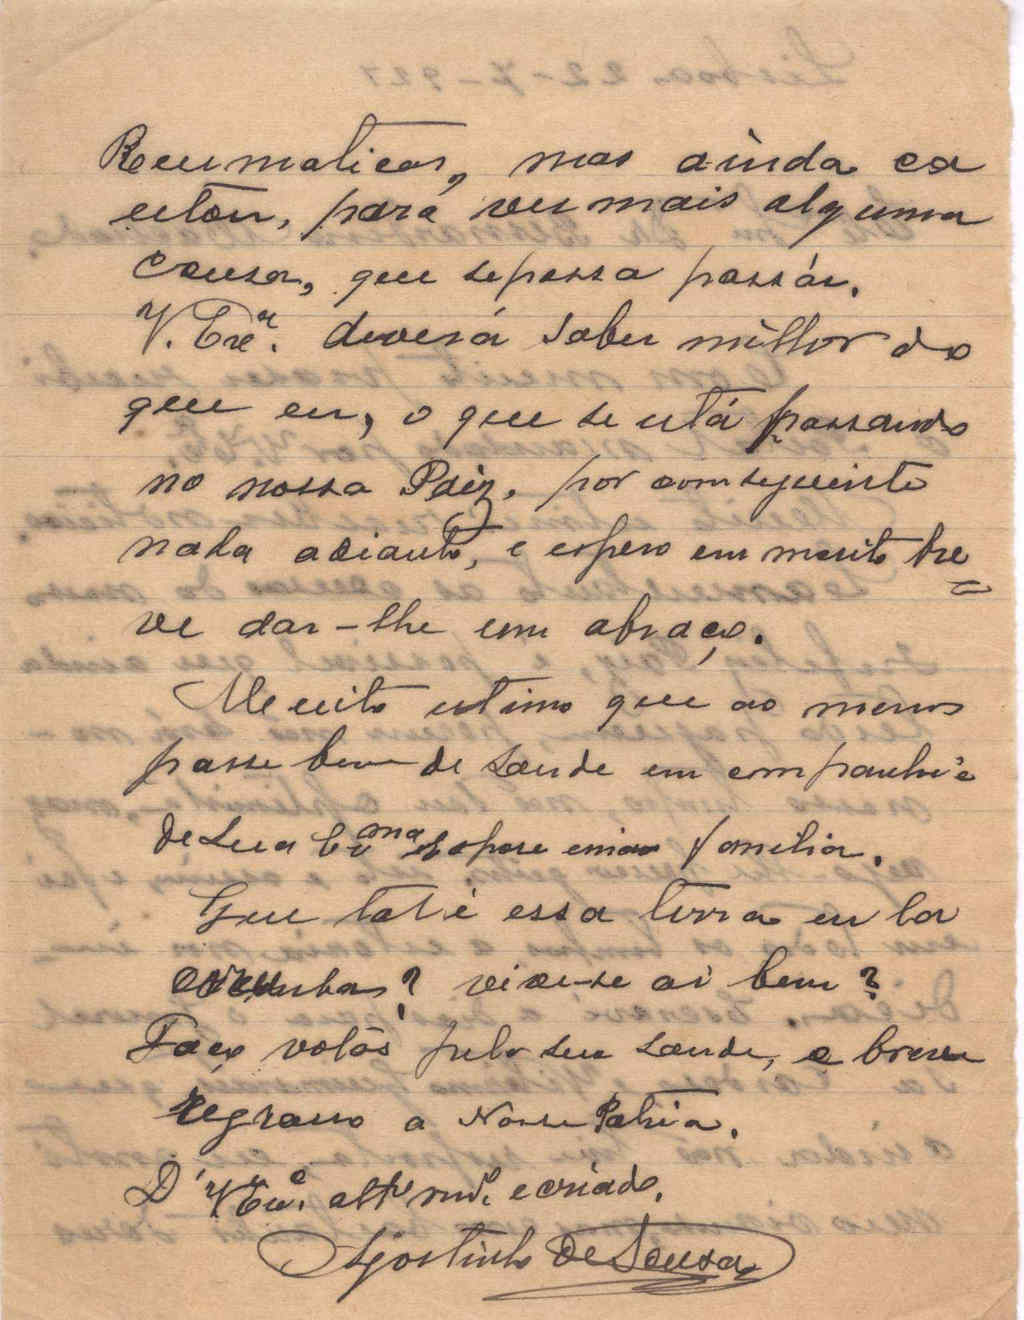 Reumaticas, mas ainda ca
estou, para ver mais alguma
cousa, que se possa passár.
V. Exª. deverá saber milhor do
que eu, o que se está passando
no nossa Paiz, por comseguinte
nada adianto, e espero em muito bre=
ve dar-lhe um abraço.
Muito estimo que ao menos
passe bem de saude em companhia
de sua Exma família.
Que tal é essa terra en la
corunha? vive-se ai bem?
Faço votos pela sua saude, e breve
regresso a Nossa Patria.
D' V. Exª. attº e criádo.
Agostinho de Sousa